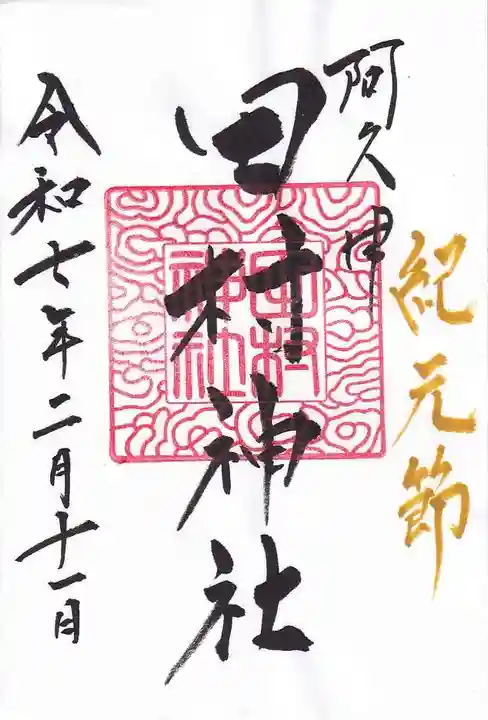 紀元節
阿久津
田村神社
田村
神社
令和七年二月十一日